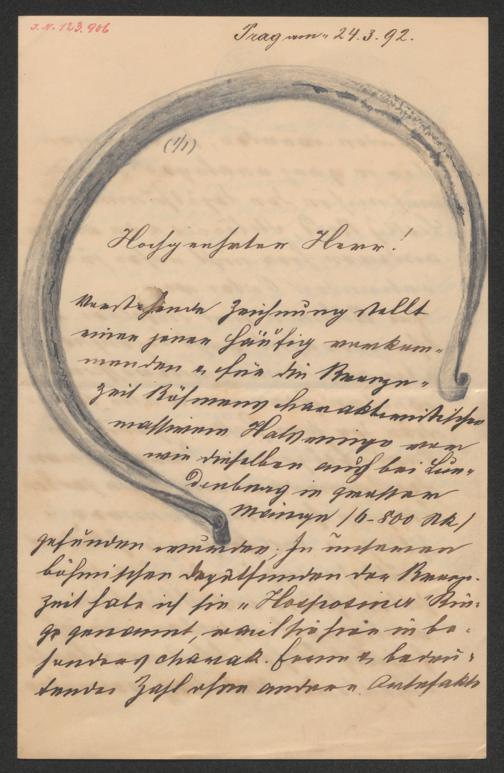 J.N. 123.906
Prag am 24.3.92.
(1/1)
Hochgeehrter Herr!
Vorstehende Zeichnung stellt
einen jener häufig vorkom-
menden u. für die Bronze-
zeit Böhmens charakteristischen
massiven Halsringe vor
wie dieselben auch bei Lun-
denburg in grosser
Menge (6-800 Stk)
gefunden wurden. In unseren
böhmischen Depotfunden der Bronze-
zeit habe ich sie "Hosposiner" Rin-
ge genannt, weil sie hier in be-
sonders charak. Form u. bedeu-
tender Zahl ohne andere Artefakte